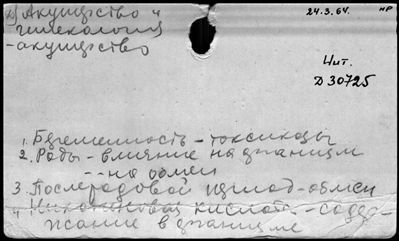 Акушерство и
гинекология
-акушерство
24.3.64.
НР
Чит.
Д 30725
1. Беременность - токсикозы
2. Роды - влияние на организм
- - на обмен
3. Послеродовой период - обмен
4 Никотиновая кислота - содер-
жание в организме